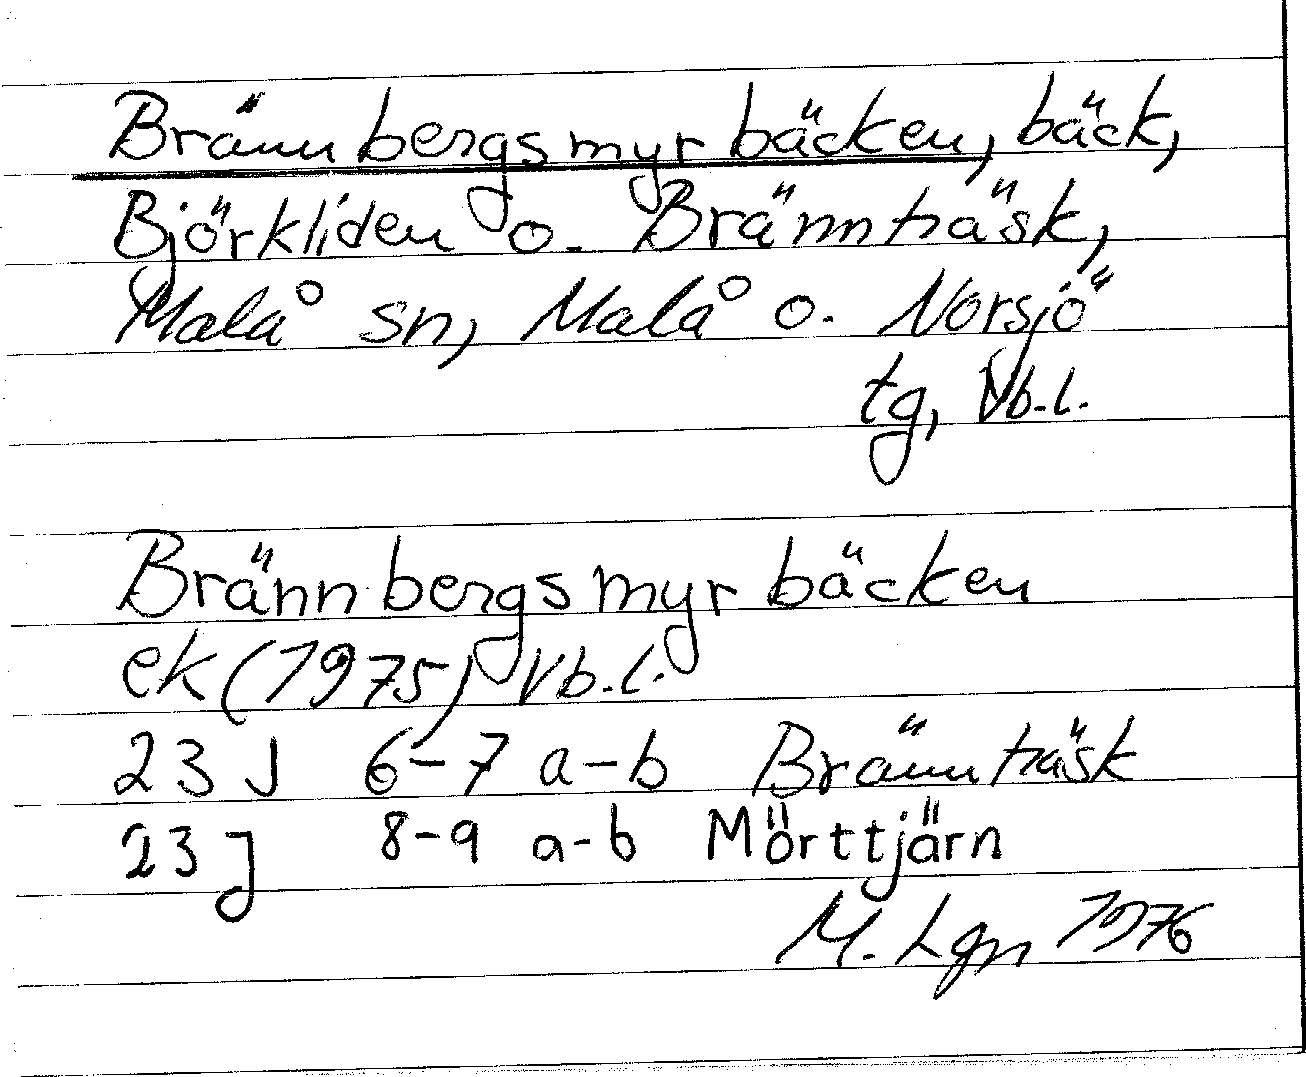 Brännbergsmyrbäcken, bäck,
Björkliden o. Brännträsk,
Malå sn, Malå o. Norsjö
tg, Vb.l.
Brännbergsmyrbäcken
ek (1975) Vb.l.
23 J 6-7 a-b Brännträsk
23 J 8-9 a-b Mörttjärn
M. Lgn 1976